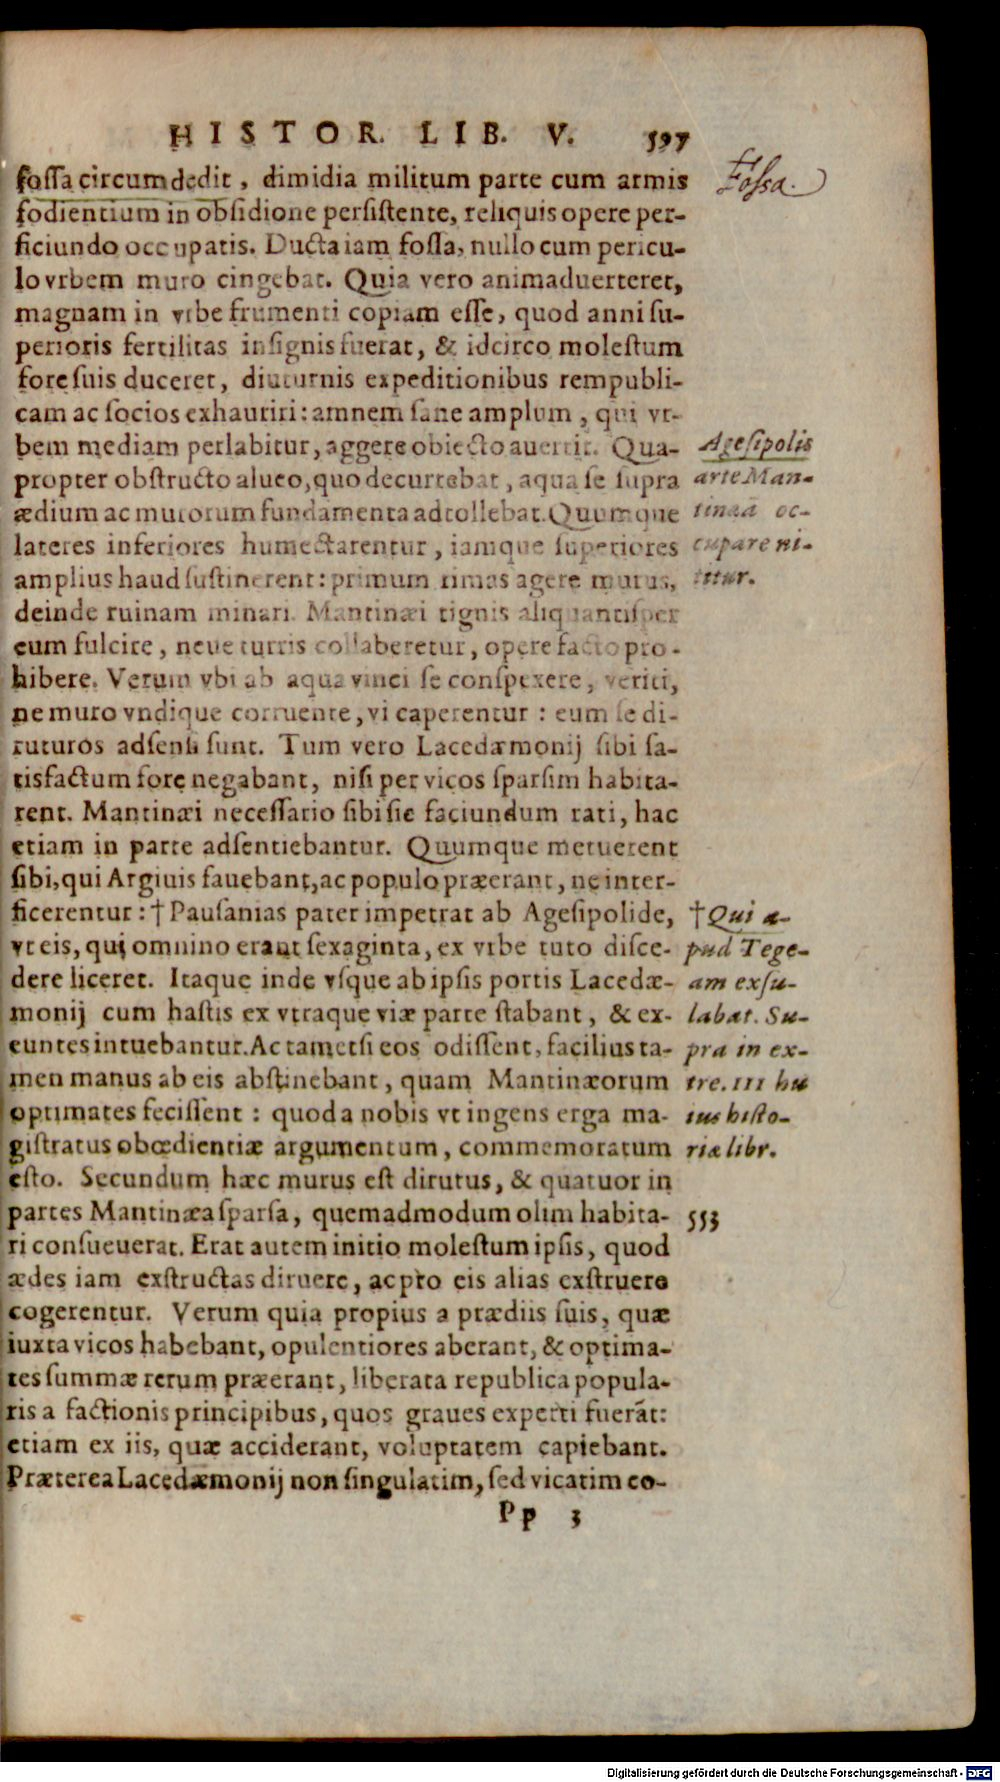 HISTOR. LIB. V. 597
foſſa circumdedit, dimidia militum parte cum armis
Foſsa.
fodientium in obſidione perſiſtente, reliquis opere per-
ficiundo occupatis. Ducta iam foſſa, nullo cum pericu-
lo vrbem muro cingebat. Quia vero animaduerteret,
magnam in vrbe frumenti copiam eſſe, quod anni ſu-
perioris fertilitas inſignis fuerat, & idcirco moleſtum
fore ſuis duceret, diuturnis expeditionibus rempubli-
cam ac ſocios exhauriri: amnem ſane amplum, qui vr-
bem mediam perlabitur, aggere obiecto auertit. Qua-
propter obſtructo alueo, quo decurrebat, aqua ſe ſupra
ædium ac murorum fundamenta adtollebat. Quumque
lateres inferiores humectarentur, iamque ſuperiores
amplius haud ſuſtinerent: primum rimas agere murus,
deinde ruinam minari. Mantinæi tignis aliquantiſper
eum fulcire, neue turris collaberetur, opere facto pro-
hibere. Verum vbi ab aqua vinci ſe conſpexere, veriti,
ne muro vndique corruente, vi caperentur: eum ſe di-
ruturos adſenſi ſunt. Tum vero Lacedæmonij ſibi ſa-
tisfactum fore negabant, niſi per vicos ſparſim habita-
rent. Mantinæi neceſſario ſibi ſic faciundum rati, hac
etiam in parte adſentiebantur. Quumque metuerent
ſibi, qui Argiuis fauebant, ac populo præerant, ne inter-
ficerentur: † Pauſanias pater impetrat ab Ageſipolide,
vt eis, qui omnino erant ſexaginta, ex vrbe tuto diſce-
dere liceret. Itaque inde vſque ab ipſis portis Lacedæ-
monij cum haſtis ex vtraque viæ parte ſtabant, & ex-
euntes intuebantur. Ac tametſi eos odiſſent, facilius ta-
men manus ab eis abſtinebant, quam Mantinæorum
optimates feciſſent: quod a nobis vt ingens erga ma-
giſtratus obœdientiæ argumentum, commemoratum
eſto. Secundum hæc murus eſt dirutus, & quatuor in
partes Mantinæa ſparſa, quemadmodum olim habita-
ri conſueuerat. Erat autem initio moleſtum ipſis, quod
ædes iam exſtructas diruere, ac pro eis alias exſtruere
cogerentur. Verum quia propius a prædiis ſuis, quæ
iuxta vicos habebant, opulentiores aberant, & optima-
tes ſummæ rerum præerant, liberata republica popula-
ris a factionis principibus, quos graues experti fuerāt:
etiam ex iis, quæ acciderant, voluptatem capiebant.
Præterea Lacedæmonij non ſingulatim, ſed vicatim co-
Pp 3
Ageſipolis
arte Man-
tinæā oc-
cupare ni-
titur.
† Qui a-
pud Tege-
am exſu-
labat. Su-
pra in ex-
tre. III hu
ius hiſto-
riæ libr.
553
Digitalisierung gefördert durch die Deutsche Forschungsgemeinschaft - DFG